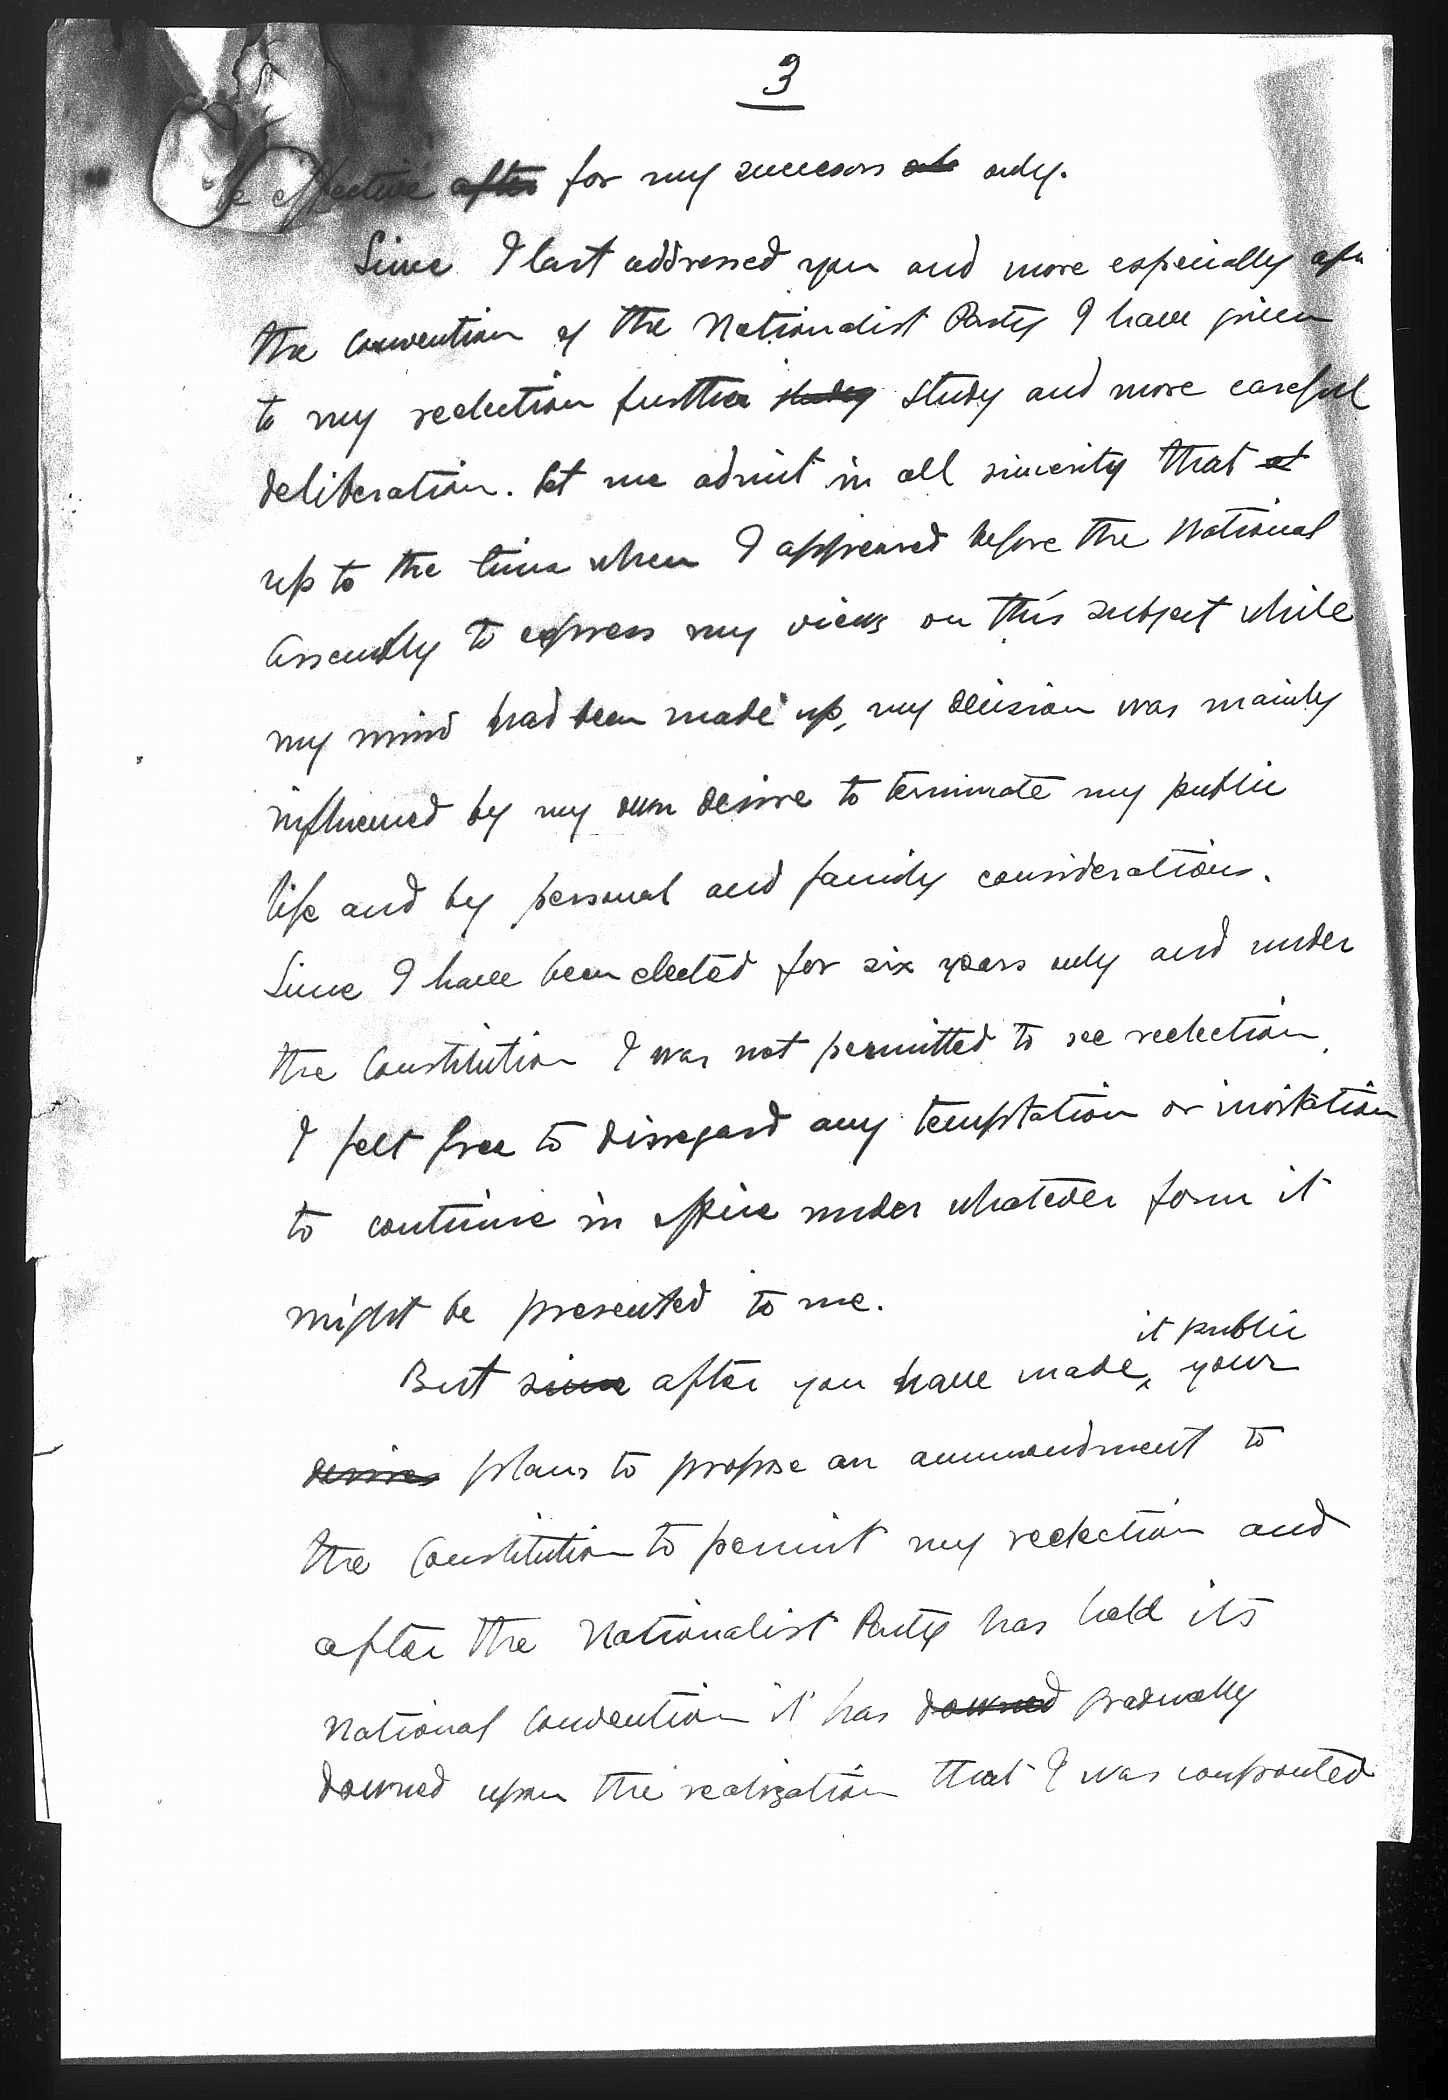 3
be effective after for my succesors only.
Since I last addressed you and more especially after
the convention of the Nationalist Party I have given
to my reelection further study study and more careful
deliberation. Let me admit in all sincerity that at
up to the time when I appeared before the National
Assembly to express my views on this subject while
my mind had been made up, my decision was mainly
influenced by my own desire to terminate my public
life and by personal and family considerations.
Since I have been elected for six years only and under
the Constitution I was not permitted to see reelection,
I felt free to disregard any temptation or invitation
to continue in office under whatever form it
might be presented to me.
it public
But since after you have made ^ your
desires plans to propose an ammendment to
the Constitution to permit my reelection and
after the Nationalist Party has held its
National Convention it has downed gradually
downed upon the realization that I was confronted